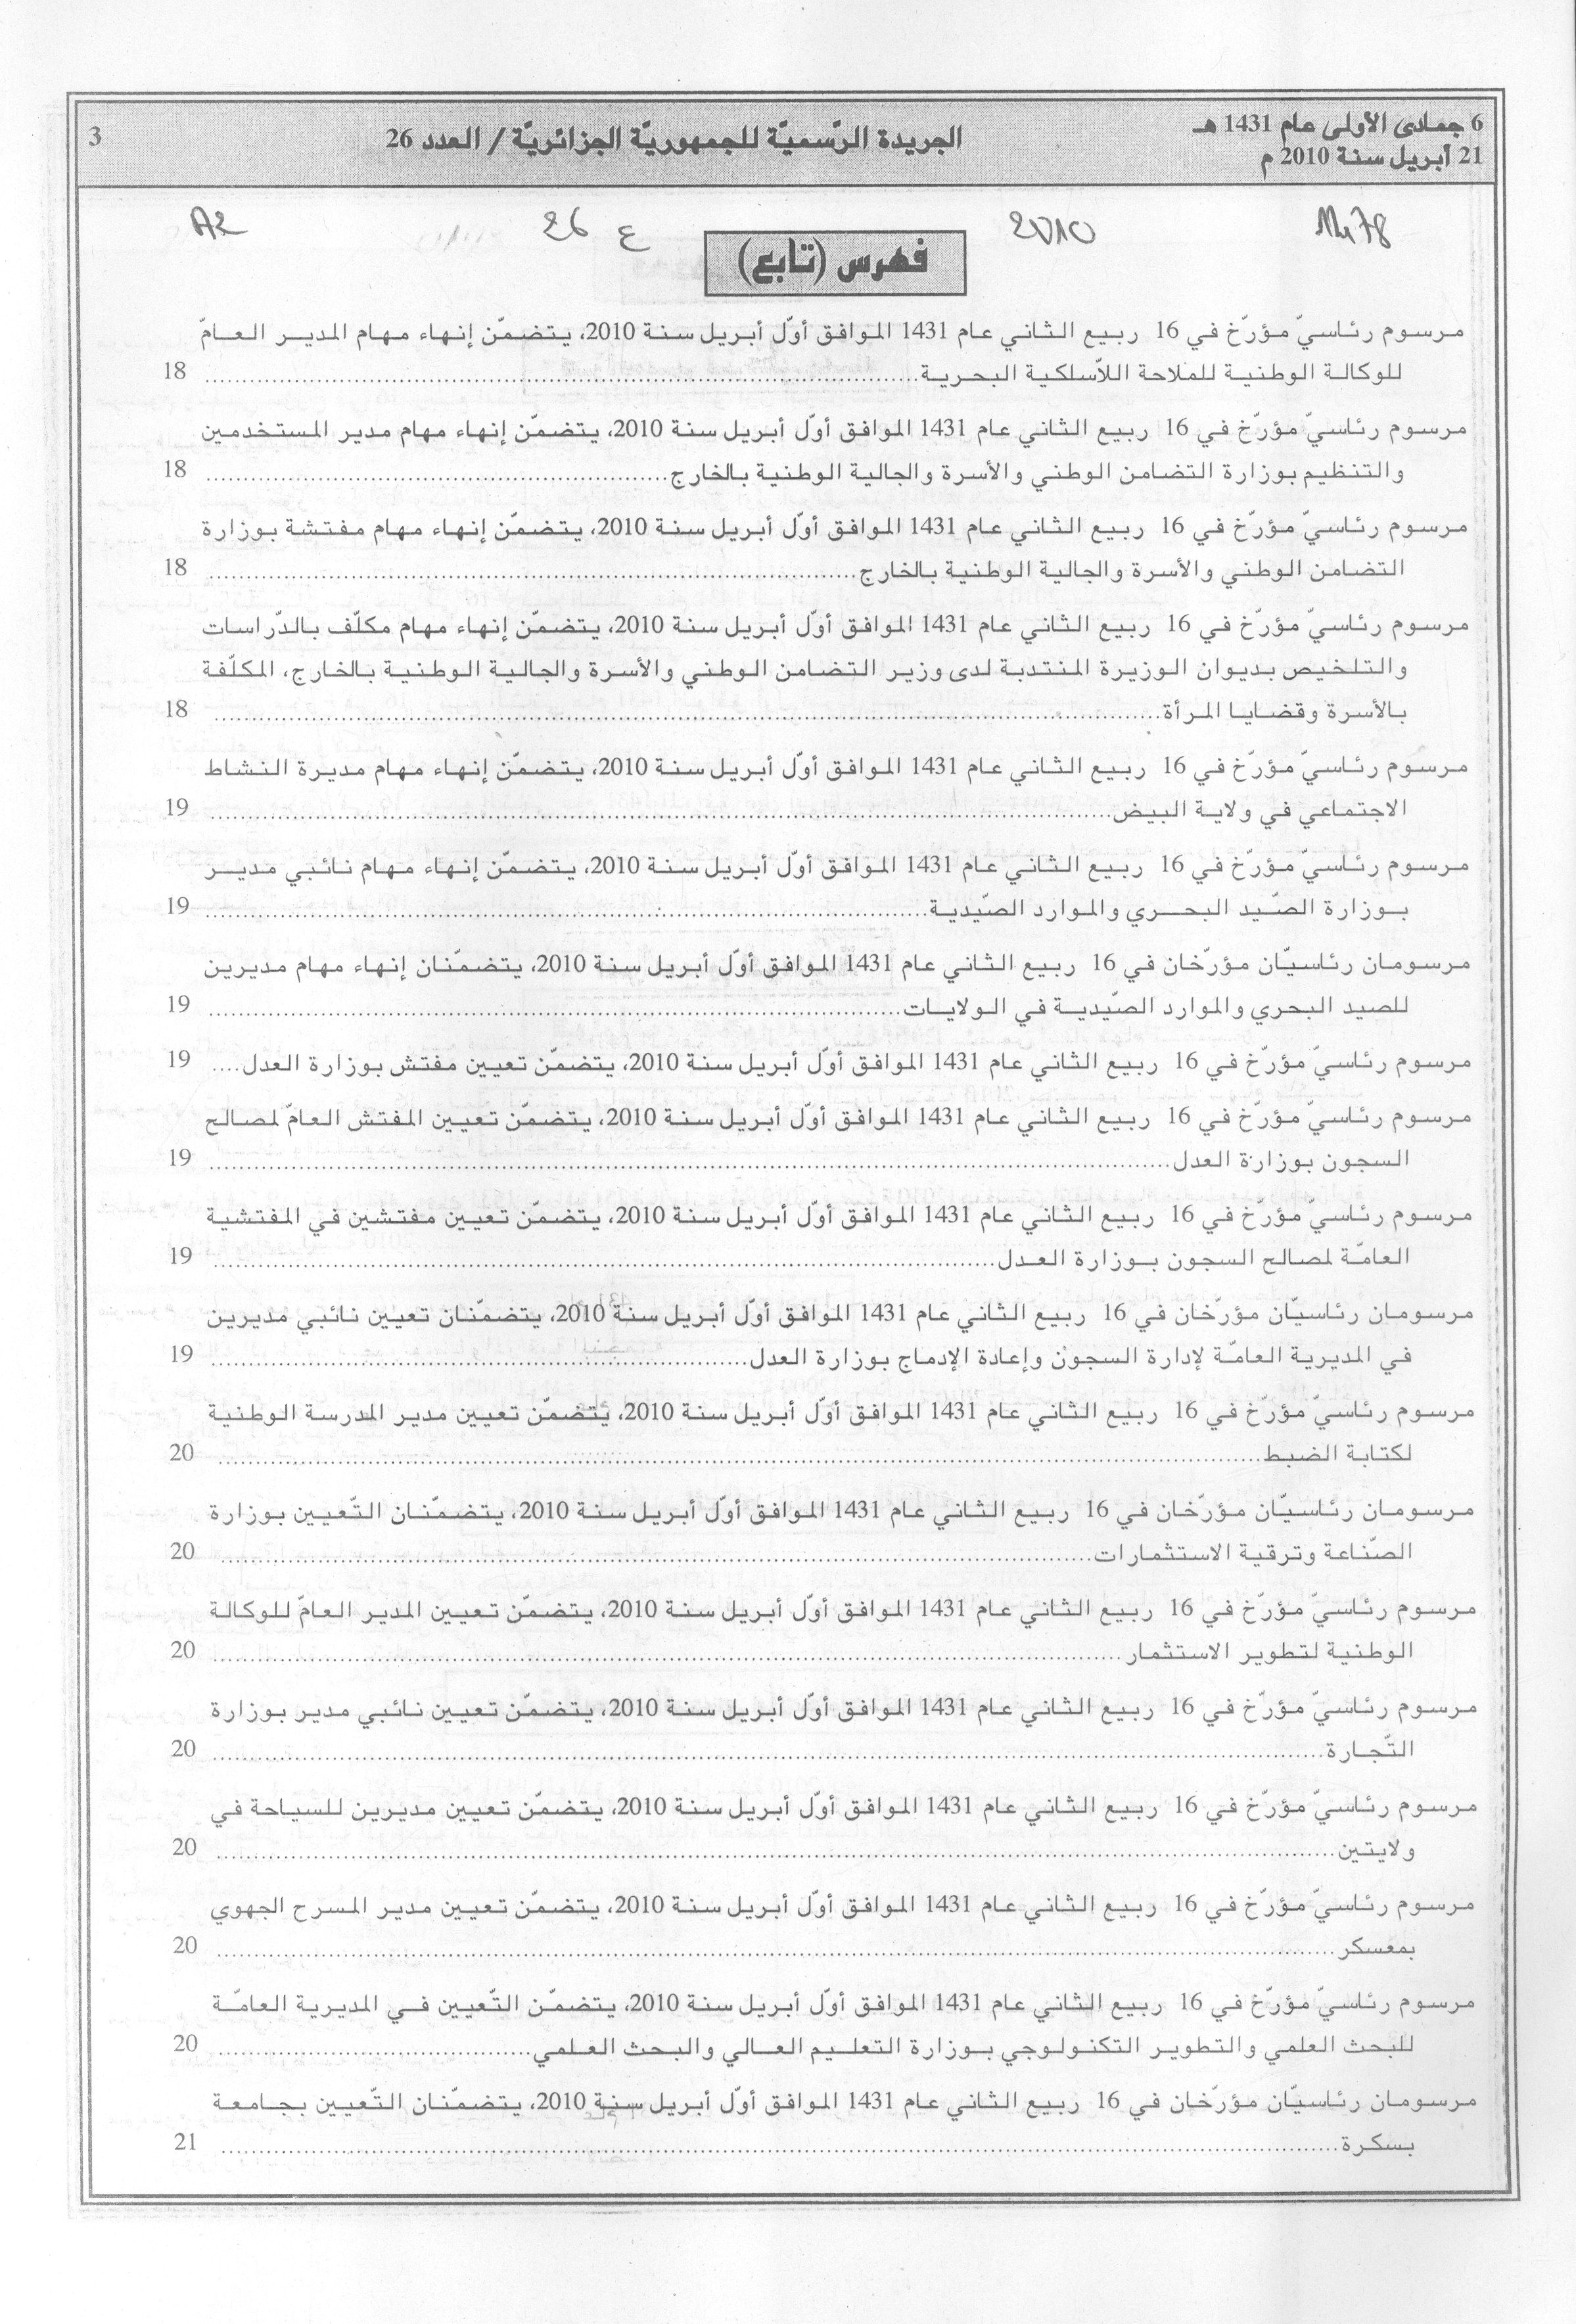 6 جمادى الأولى عام 1431 هـ
21 أبريل سنة 2010 م
الجريدة الرّسميّة للجمهوريّة الجزائريّة / العدد 26
3
2010
ع 26
A2
فهرس (تابع)
مرسوم رئاسيّ مؤرّخ في 16 ربيع الثاني عام 1431 الموافق أوّل أبريل سنة 2010، يتضمّن إنهاء مهام المدير العامّ
للوكالة الوطنية للملاحة اللاّسلكية البحرية.......... 18
مرسوم رئاسيّ مؤرّخ في 16 ربيع الثاني عام 1431 الموافق أوّل أبريل سنة 2010، يتضمّن إنهاء مهام مدير المستخدمين
والتنظيم بوزارة التضامن الوطني والأسرة والجالية الوطنية بالخارج.......... 18
مرسوم رئاسيّ مؤرّخ في 16 ربيع الثاني عام 1431 الموافق أوّل أبريل سنة 2010، يتضمّن إنهاء مهام مفتشة بوزارة
التضامن الوطني والأسرة والجالية الوطنية بالخارج.......... 18
مرسوم رئاسيّ مؤرّخ في 16 ربيع الثاني عام 1431 الموافق أوّل أبريل سنة 2010، يتضمّن إنهاء مهام مكلّف بالدّراسات
والتلخيص بديوان الوزيرة المنتدبة لدى وزير التضامن الوطني والأسرة والجالية الوطنية بالخارج، المكلّفة
بالأسرة وقضايا المرأة.......... 18
مرسوم رئاسيّ مؤرّخ في 16 ربيع الثاني عام 1431 الموافق أوّل أبريل سنة 2010، يتضمّن إنهاء مهام مديرة النشاط
الاجتماعي في ولاية البيض.......... 19
مرسوم رئاسيّ مؤرّخ في 16 ربيع الثاني عام 1431 الموافق أوّل أبريل سنة 2010، يتضمّن إنهاء مهام نائبي مدير
بوزارة الصّيد البحري والموارد الصّيدية.......... 19
مرسومان رئاسيّان مؤرّخان في 16 ربيع الثاني عام 1431 الموافق أوّل أبريل سنة 2010، يتضمّنان إنهاء مهام مديرين
للصيد البحري والموارد الصّيدية في الولايات.......... 19
مرسوم رئاسيّ مؤرّخ في 16 ربيع الثاني عام 1431 الموافق أوّل أبريل سنة 2010، يتضمّن تعيين مفتش بوزارة العدل.... 19
مرسوم رئاسيّ مؤرّخ في 16 ربيع الثاني عام 1431 الموافق أوّل أبريل سنة 2010، يتضمّن تعيين المفتش العامّ لمصالح
السجون بوزارة العدل.......... 19
مرسوم رئاسيّ مؤرّخ في 16 ربيع الثاني عام 1431 الموافق أوّل أبريل سنة 2010، يتضمّن تعيين مفتشين في المفتشية
العامّة لمصالح السجون بوزارة العدل.......... 19
مرسومان رئاسيّان مؤرّخان في 16 ربيع الثاني عام 1431 الموافق أوّل أبريل سنة 2010، يتضمّنان تعيين نائبي مديرين
في المديرية العامّة لإدارة السجون وإعادة الإدماج بوزارة العدل.......... 19
مرسوم رئاسيّ مؤرّخ في 16 ربيع الثاني عام 1431 الموافق أوّل أبريل سنة 2010، يتضمّن تعيين مدير المدرسة الوطنية
لكتابة الضبط.......... 20
مرسومان رئاسيّان مؤرّخان في 16 ربيع الثاني عام 1431 الموافق أوّل أبريل سنة 2010، يتضمّنان التّعيين بوزارة
الصّناعة وترقية الاستثمارات.......... 20
مرسوم رئاسيّ مؤرّخ في 16 ربيع الثاني عام 1431 الموافق أوّل أبريل سنة 2010، يتضمّن تعيين المدير العامّ للوكالة
الوطنية لتطوير الاستثمار.......... 20
مرسوم رئاسيّ مؤرّخ في 16 ربيع الثاني عام 1431 الموافق أوّل أبريل سنة 2010، يتضمّن تعيين نائبي مدير بوزارة
التّجارة.......... 20
مرسوم رئاسيّ مؤرّخ في 16 ربيع الثاني عام 1431 الموافق أوّل أبريل سنة 2010، يتضمّن تعيين مديرين للسياحة في
ولايتين.......... 20
مرسوم رئاسيّ مؤرّخ في 16 ربيع الثاني عام 1431 الموافق أوّل أبريل سنة 2010، يتضمّن تعيين مدير المسرح الجهوي
بمعسكر.......... 20
مرسوم رئاسيّ مؤرّخ في 16 ربيع الثاني عام 1431 الموافق أوّل أبريل سنة 2010، يتضمّن التّعيين في المديرية العامّة
للبحث العلمي والتطوير التكنولوجي بوزارة التعليم العالي والبحث العلمي.......... 20
مرسومان رئاسيّان مؤرّخان في 16 ربيع الثاني عام 1431 الموافق أوّل أبريل سنة 2010، يتضمّنان التّعيين بجامعة
بسكرة.......... 21